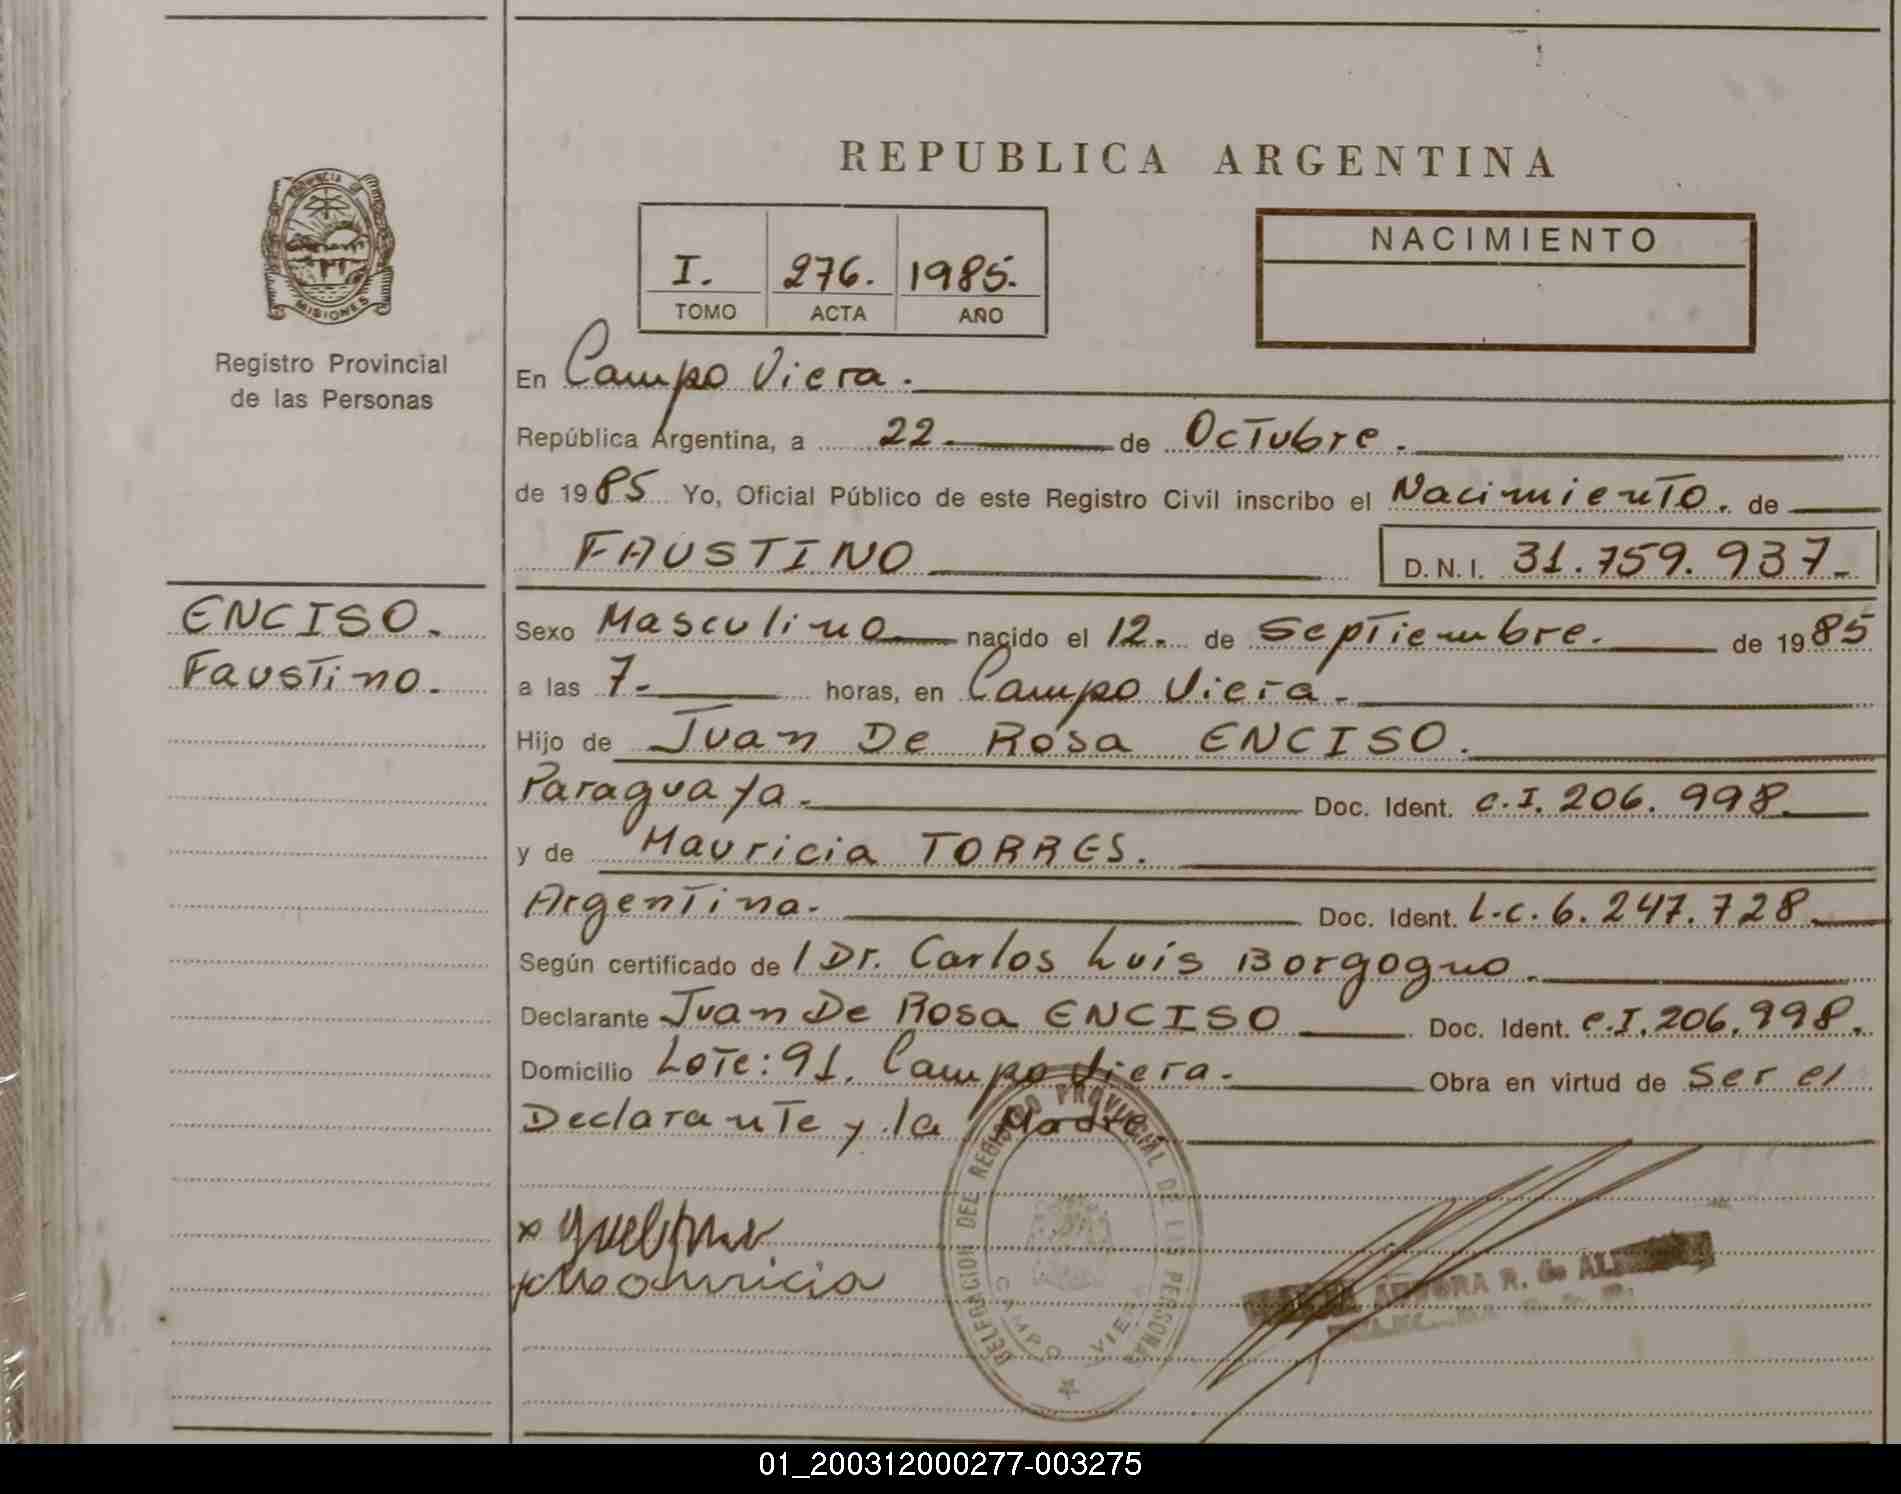 REPUBLICA ARGENTINA
PROVINCIA DE
MISIONES
Registro Provincial
de las Personas
I. 276. 1985.
TOMO ACTA AÑO
NACIMIENTO
En Campo Viera.
República Argentina, a 22. de Octubre.
de 1985 Yo, Oficial Público de este Registro Civil inscribo el Nacimiento. de
FAUSTINO D.N.I. 31.759.937-
ENCISO.
Faustino.
Sexo Masculino nacido el 12. de Septiembre. de 1985
a las 7- horas, en Campo Viera.
Hijo de Juan De Rosa ENCISO.
Paraguaya. Doc. Ident. C.I. 206.998.
y de Mauricia TORRES.
Argentina. Doc. Ident. L.C. 6.247.728.
Según certificado de / Dr. Carlos Luis Borgogno.
Declarante Juan De Rosa ENCISO Doc. Ident. C.I. 206.998.
Domicilio Lote: 91. Campo Viera. Obra en virtud de Ser el
Declarante y la Madre.
x
x Mauricia
DELEGACION DEL REGISTRO PROVINCIAL DE LAS PERSONAS
CAMPO VIERA
R. de
01_200312000277-003275